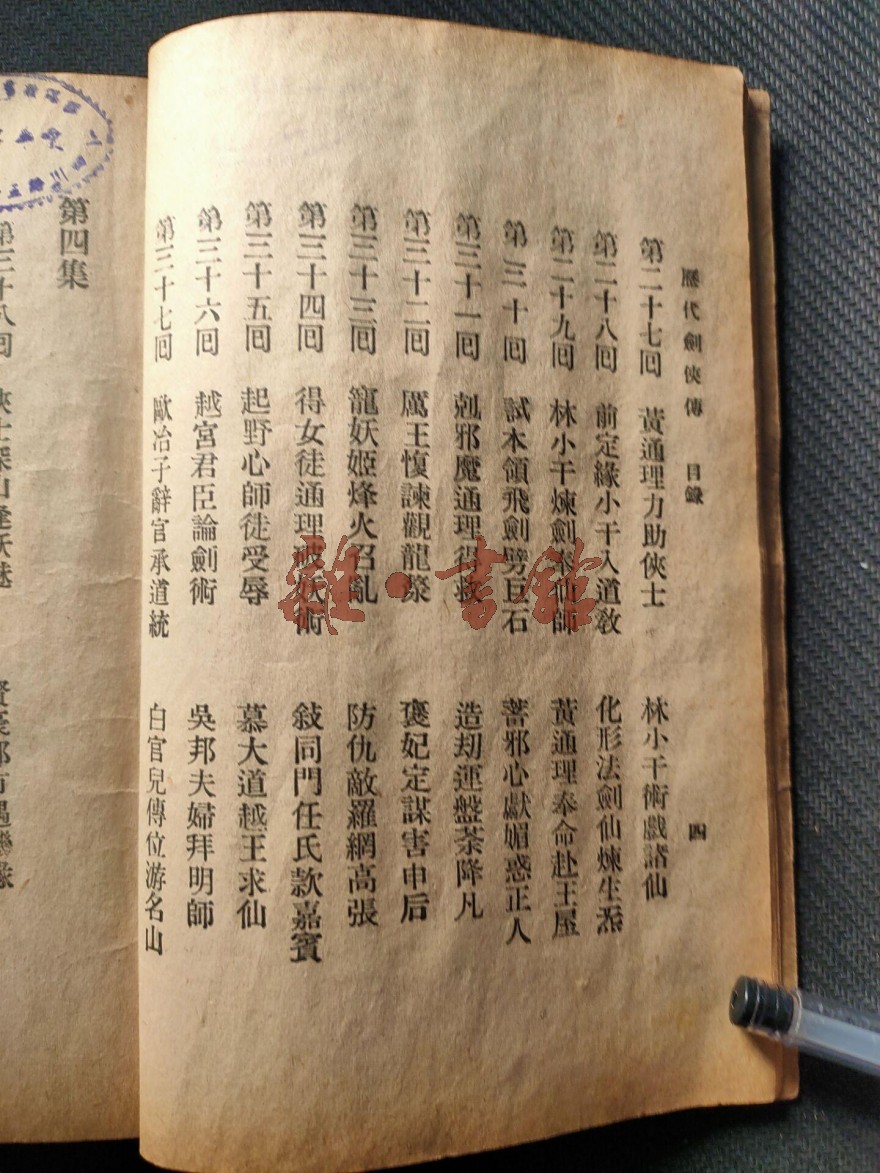 歷代劍俠傳 目錄 四
第二十七回 黃通理力助俠士 林小干術戲諸仙
第二十八回 前定緣小干入道敎 化形法劍仙煉生炁
第二十九回 林小干煉劍奉仙師 黃通理奉命赴王屋
第三十回 試木領飛劍劈巨石 蓄邪心獻媚惑正人
第三十一回 剋邪魔通理得救 造刧運盤荼降凡
第三十二回 厲王愎諫觀龍漦 褒妃定謀害申后
第三十三回 寵妖姬烽火召亂 防仇敵羅網高張
第三十四回 得女徒通理破妖術 敍同門任氏款嘉賓
第三十五回 起野心師徒受辱 慕大道越王求仙
第三十六回 越宮君臣論劍術 吳邦夫婦拜明師
第三十七回 歐冶子辭官承道統 白官兒傳位游名山
第四集
第三十八回 俠士深山逢妖魅
雜·書館